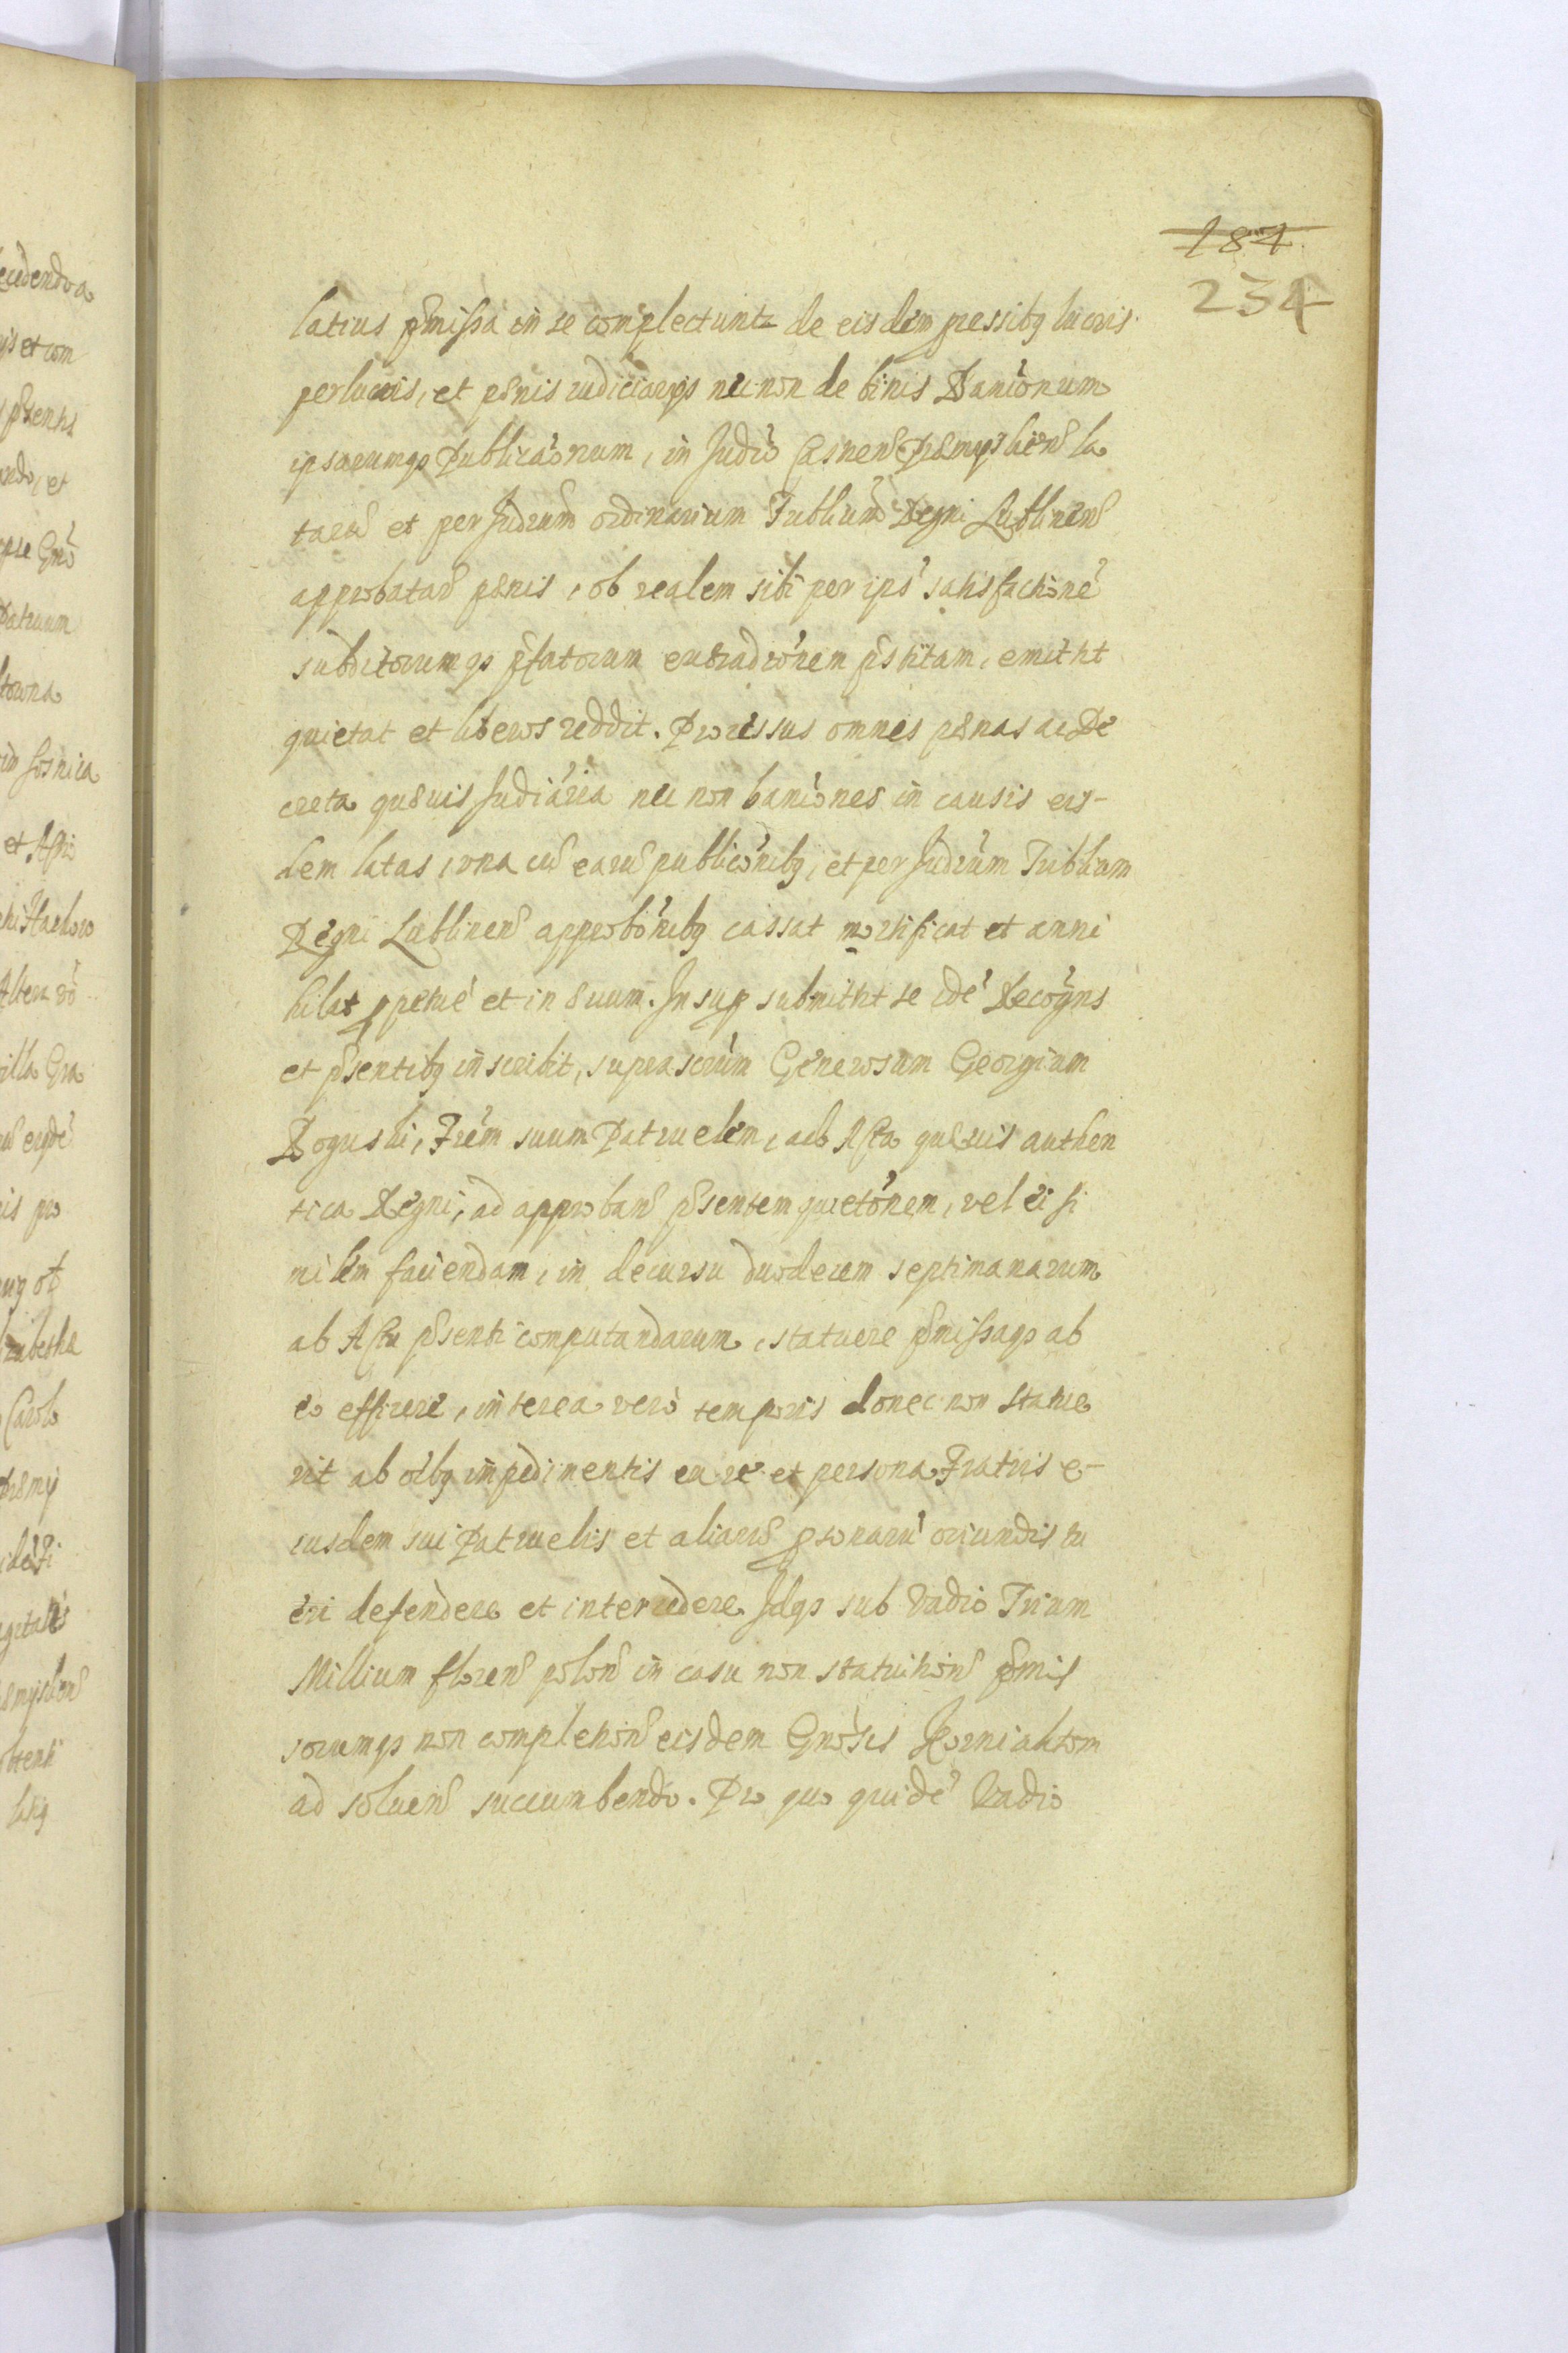 187
234
latius pmissa in se complectuntr de eisdem pressibq lucris
perlucris, et pœnis iudiciariisqs necnon de binis Banionum
ipsarumqs Publicaonum, in Judio Casnen Præmysliens la
tarũ et per Judicium ordinarium Tribliũ Regni Lublinens
approbatarũ pœnis, ob realem sibi per ips satisfactionẽ
subditorumqs pfatorum extradiõnem pstitam, emittit
quietat et liberos reddit. Processus omnes pœnas ac De
creta quæuis Judiãria nec non baniones in causis eis-
dem latas, vna cũ earũ publicõnibq, et per Judicium Triblium
Regni Lublinens approbõnibq cassat mortificat et anni
hilat ppetuè et in æuum. Insup submittit se idẽ Recogns
et psentibq inscribit, suprascrum Generosum Georgium
Boguski, Frẽm suum Patruelem, ad Acta quæuis authen
tica Regni, ad approband psentem quietõnem, vel ei si
milem faciendam, in decursu duodecem septimanarum
ab Actu psenti computandarum, statuere pmissaqs ab
eo efficere, interea verò temporis donec non statue
rit ab oibq impedimentis ex re et persona Fratris e-
iusdem sui Patruelis et aliarũ psonarũ oriundis tu
eri defendere et intercedere. Idqs sub Vadio Trium
Millium floren polon in casu non statuitionis pmis
sorumqs non completionis eisdem Gnosis Korniaktom
ad soluend succumbendo. Pro quo quidẽ Vadio